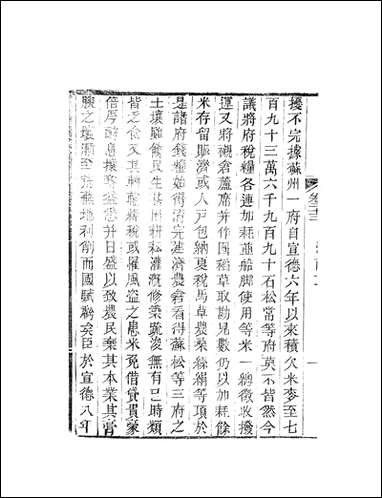 擾不完據蘇州一府自宣德六年以來積欠米麥至七
百九十三萬六千九百九十石松常等府莫不皆然今
議將府稅糧各連加耗並船脚使用等米一總徵收撥
運又將襯倉蘆蓆并作囤稻草取勘見數仍以加耗餘
米存留賑濟或人戶包納夏稅馬草農桑絲絹等項於
是諸府錢糧始得清完連濟農倉看得蘇松等三府之
土壤雖饒民生甚困耕耘灌漑修築陂浚無有已時類
皆乏食又其納糧稅或罹風盜之患未免借貸貫蒙
倍厚酷息攘益甚并日盛以致農民棄其本業其膏
腴之壤漸至荒蕪地利削而國賦虧矣臣於宣德八年